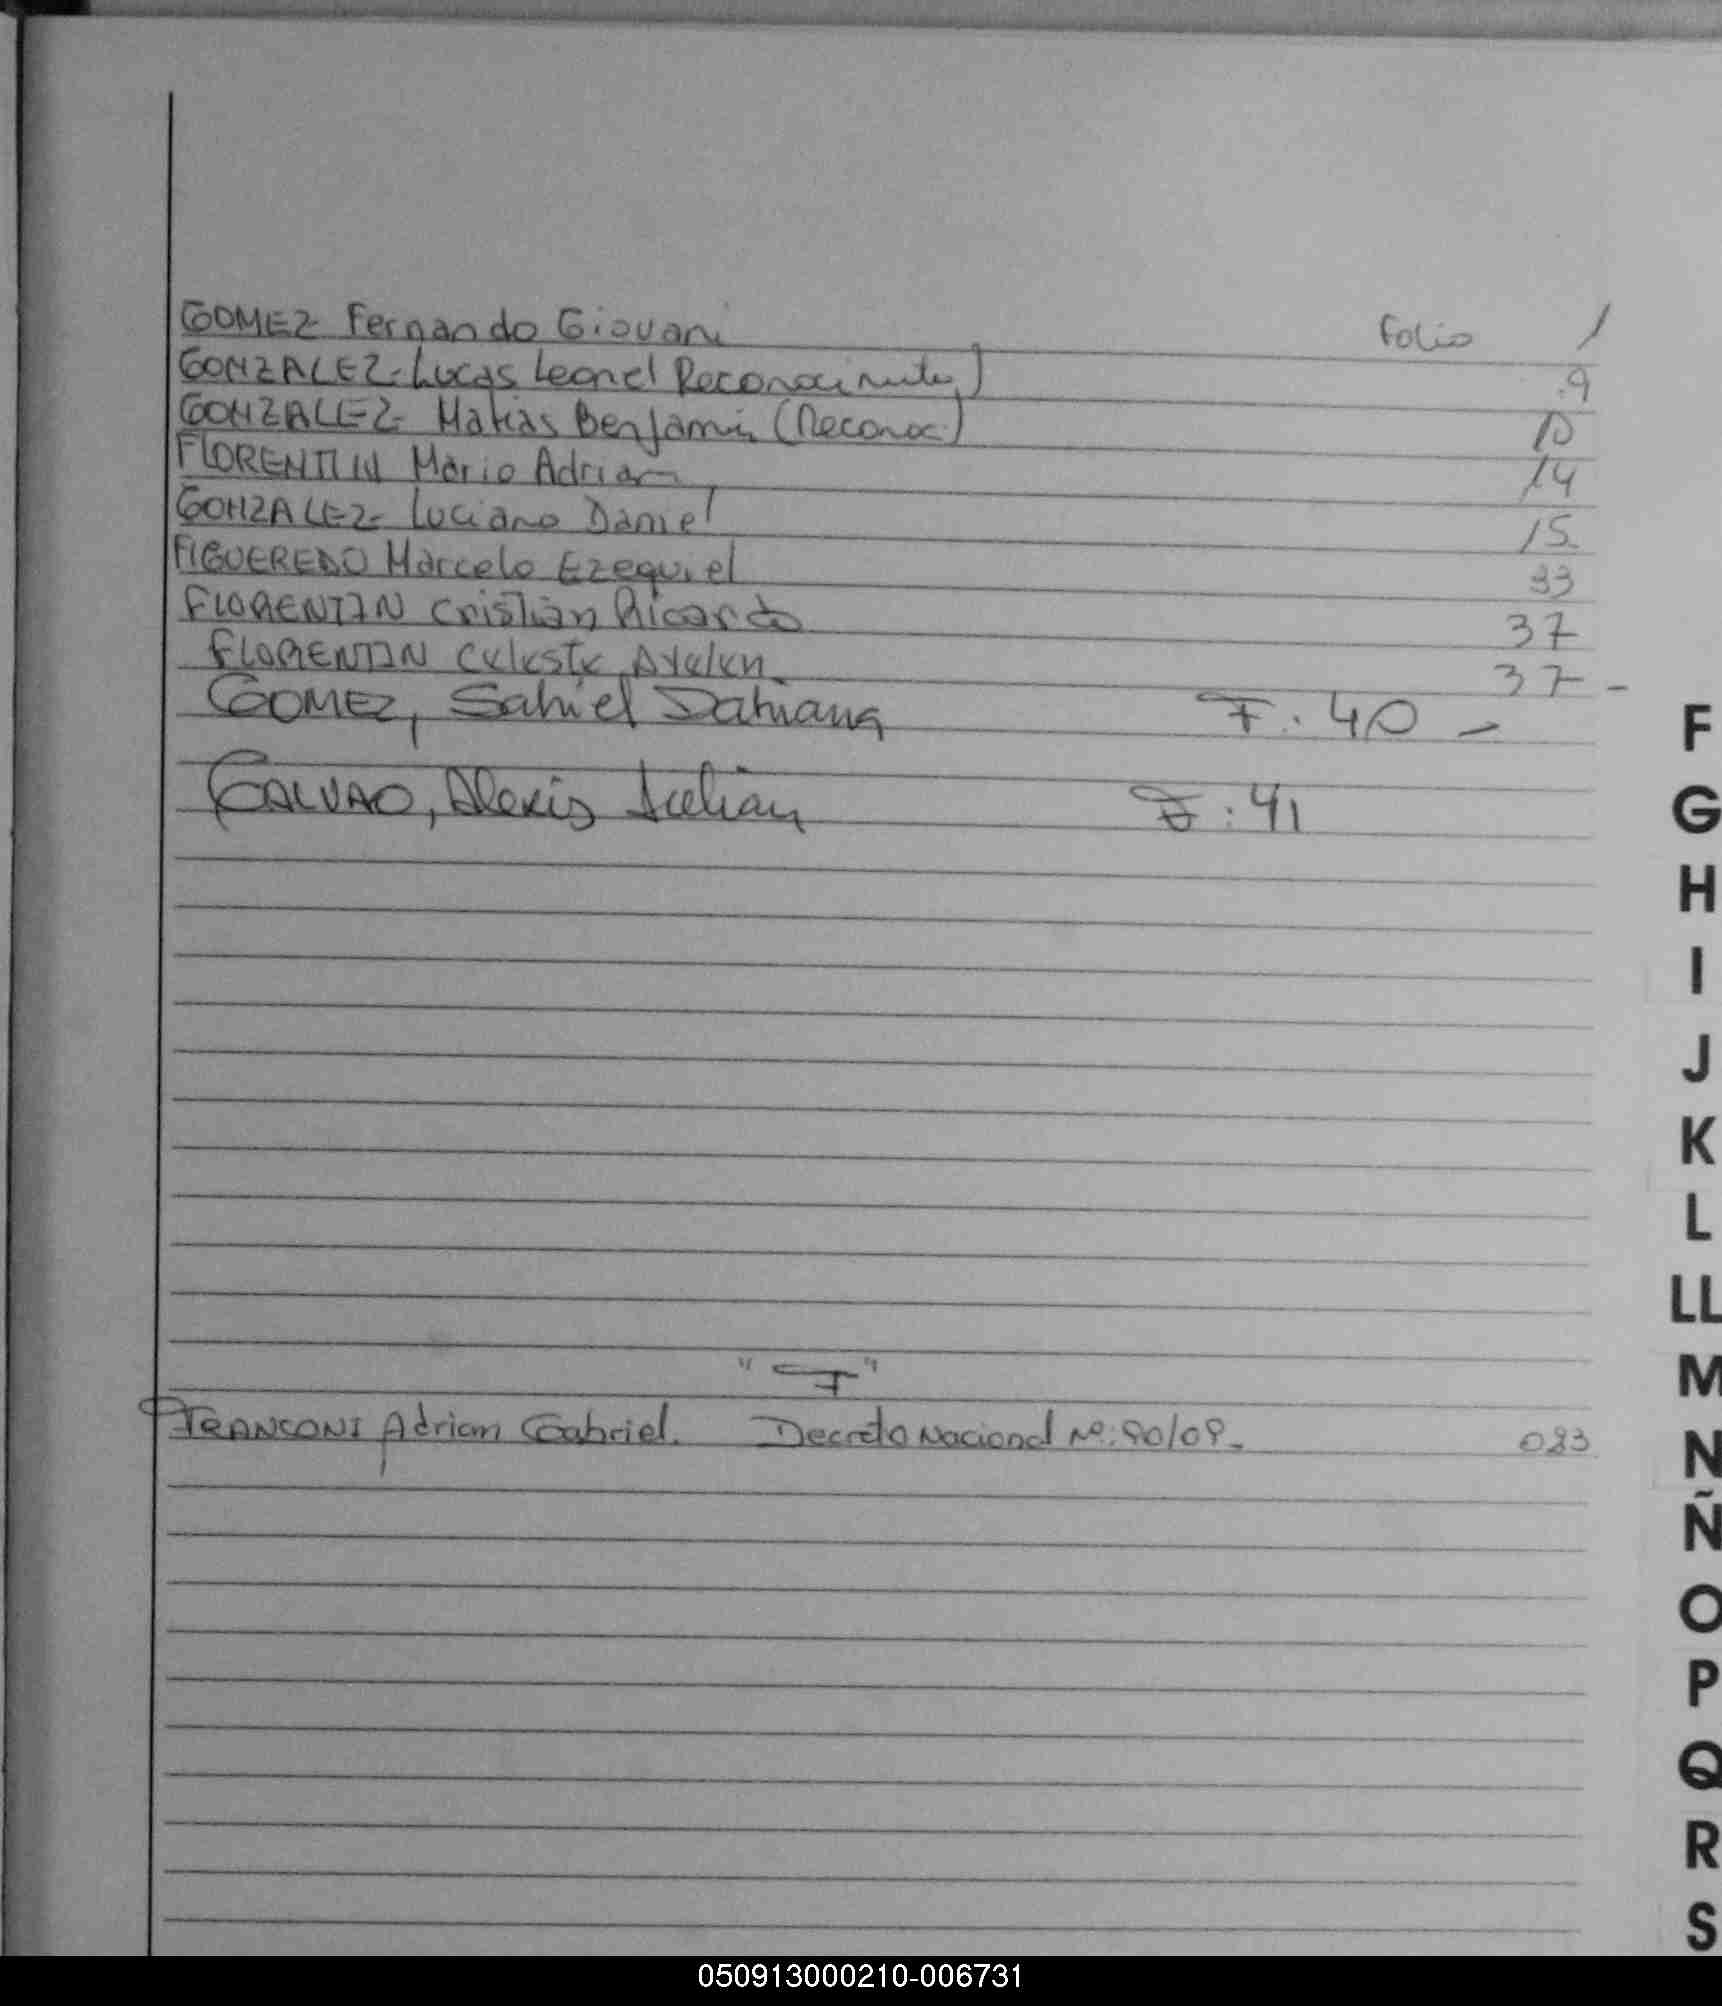 GOMEZ Fernando Giovani Folio 1
GONZALEZ- Lucas Leonel Reconocimiento) 9
GONZALEZ- Matias Benjamin (Reconoc.) 10
FLORENTIN Mario Adrian 14
GONZALEZ- Luciano Daniel 15
FIGUEREDO Marcelo Ezequiel 33
FLORENTIN Cristian Ricardo 37
FLORENTIN Celeste Ayelen 37-
GOMEZ, Sahiel Dahiana F. 40-
GALVAO, Alexis Julian F: 41
"F"
FRANCONI Adrian Gabriel. Decreto Nacional Nº: 90/09- 083
F
G
H
I
J
K
L
LL
M
N
Ñ
O
P
Q
R
S
050913000210-006731